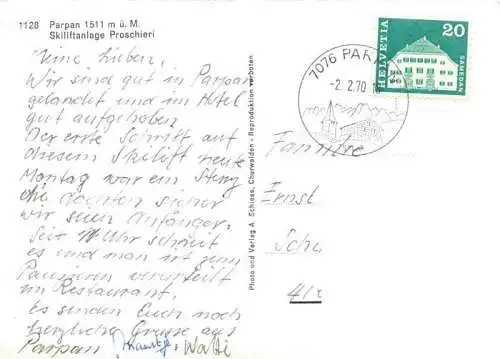 1128 Parpan 1511 m ü. M.
Skiliftanlage Proschieri
Meine Lieben,
Wir sind gut in Parpan
gelandet und im Hotel
gut aufgehoben
Der erste Schritt auf
diesem Skilift heute
Montag war ein
die dachten sicher
wir seien Anfänger.
Seit 11 Uhr schneit
es und man ist zum
Pausieren verurteilt
im Restaurant.
Es senden Euch noch
herzliche Grüsse aus
Parpan
Walti
Photo und Verlag A. Schiess, Churwalden - Reproduktion verboten
7076 PARPAN
-2. 2.70
HELVETIA
20
SAMEDAN
Familie
Ernst